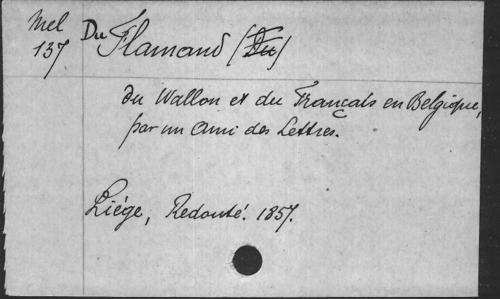 Mel
137
Du Flamand (Du)
du Wallon et du Français en Belgique,
par un Ami des Lettres.
Liége, Redouté. 1857.